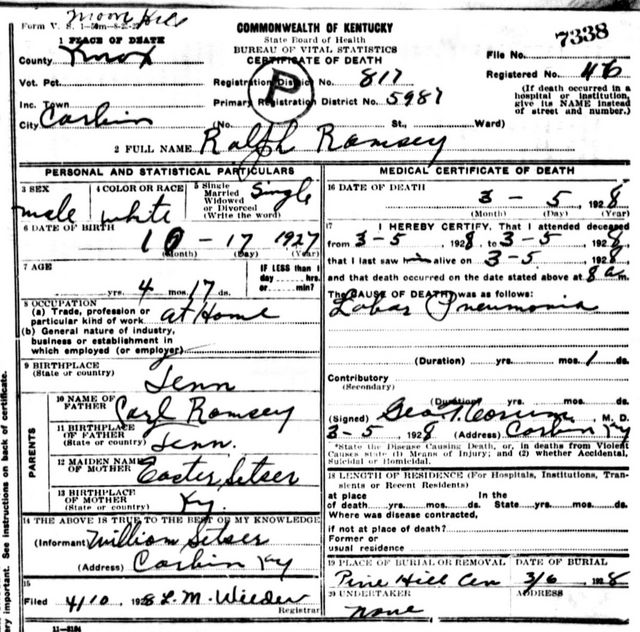 Moore Hill
Form V. S. 1-50m-8-25-27
COMMONWEALTH OF KENTUCKY
State Board of Health
BUREAU OF VITAL STATISTICS
CERTIFICATE OF DEATH
7338
1 PLACE OF DEATH
County Knox
File No.
Vot. Pct. Registration District No. 817 Registered No. 46
Inc. Town Primary Registration District No. 5987
(If death occurred in a hospital or institution, give its NAME instead of street and number.)
P
City Corbin (No. St., Ward)
2 FULL NAME Ralph Ramsey
PERSONAL AND STATISTICAL PARTICULARS
3 SEX male
4 COLOR OR RACE white
5 Single Married Widowed or Divorced (Write the word) Single
6 DATE OF BIRTH
10 - 17 1927
(Month) (Day) (Year)
7 AGE
4 mos. 17 ds.
yrs.
IF LESS than 1 day hrs. or min?
8 OCCUPATION
(a) Trade, profession or particular kind of work at Home
(b) General nature of industry, business or establishment in which employed (or employer)
9 BIRTHPLACE (State or country) Tenn
PARENTS
10 NAME OF FATHER Carl Ramsey
11 BIRTHPLACE OF FATHER (State or country) Tenn.
12 MAIDEN NAME OF MOTHER Easter Setser
13 BIRTHPLACE OF MOTHER (State or country) Ky.
14 THE ABOVE IS TRUE TO THE BEST OF MY KNOWLEDGE
(Informant) William Setser
(Address) Corbin Ky
15
Filed 4/10 1928 L. M. Wieder
Registrar
11-3184
MEDICAL CERTIFICATE OF DEATH
16 DATE OF DEATH
3 - 5 1928
(Month) (Day) (Year)
17 I HEREBY CERTIFY, That I attended deceased
from 3-5 1928, to 3-5 1928,
that I last saw alive on 3-5 1928,
and that death occurred on the date stated above at 8 a m.
The CAUSE OF DEATH was as follows:
Lobar Pneumonia
(Duration) yrs. mos. 1 ds.
Contributory
(Secondary)
(Duration) yrs. mos. ds.
(Signed) Geo. T. M. D.
3-5 1928 (Address) Corbin Ky
*State the Disease Causing Death, or, in deaths from Violent
Causes state (1) Means of Injury; and (2) whether Accidental,
Suicidal or Homicidal.
18 LENGTH OF RESIDENCE (For Hospitals, Institutions, Transients or Recent Residents)
at place In the
of death yrs. mos. ds. State yrs. mos. ds.
Where was disease contracted,
if not at place of death?
Former or
usual residence
19 PLACE OF BURIAL OR REMOVAL Pine Hill Cem
DATE OF BURIAL 3/6 1928
20 UNDERTAKER none
ADDRESS
ry important. See instructions on back of certificate.